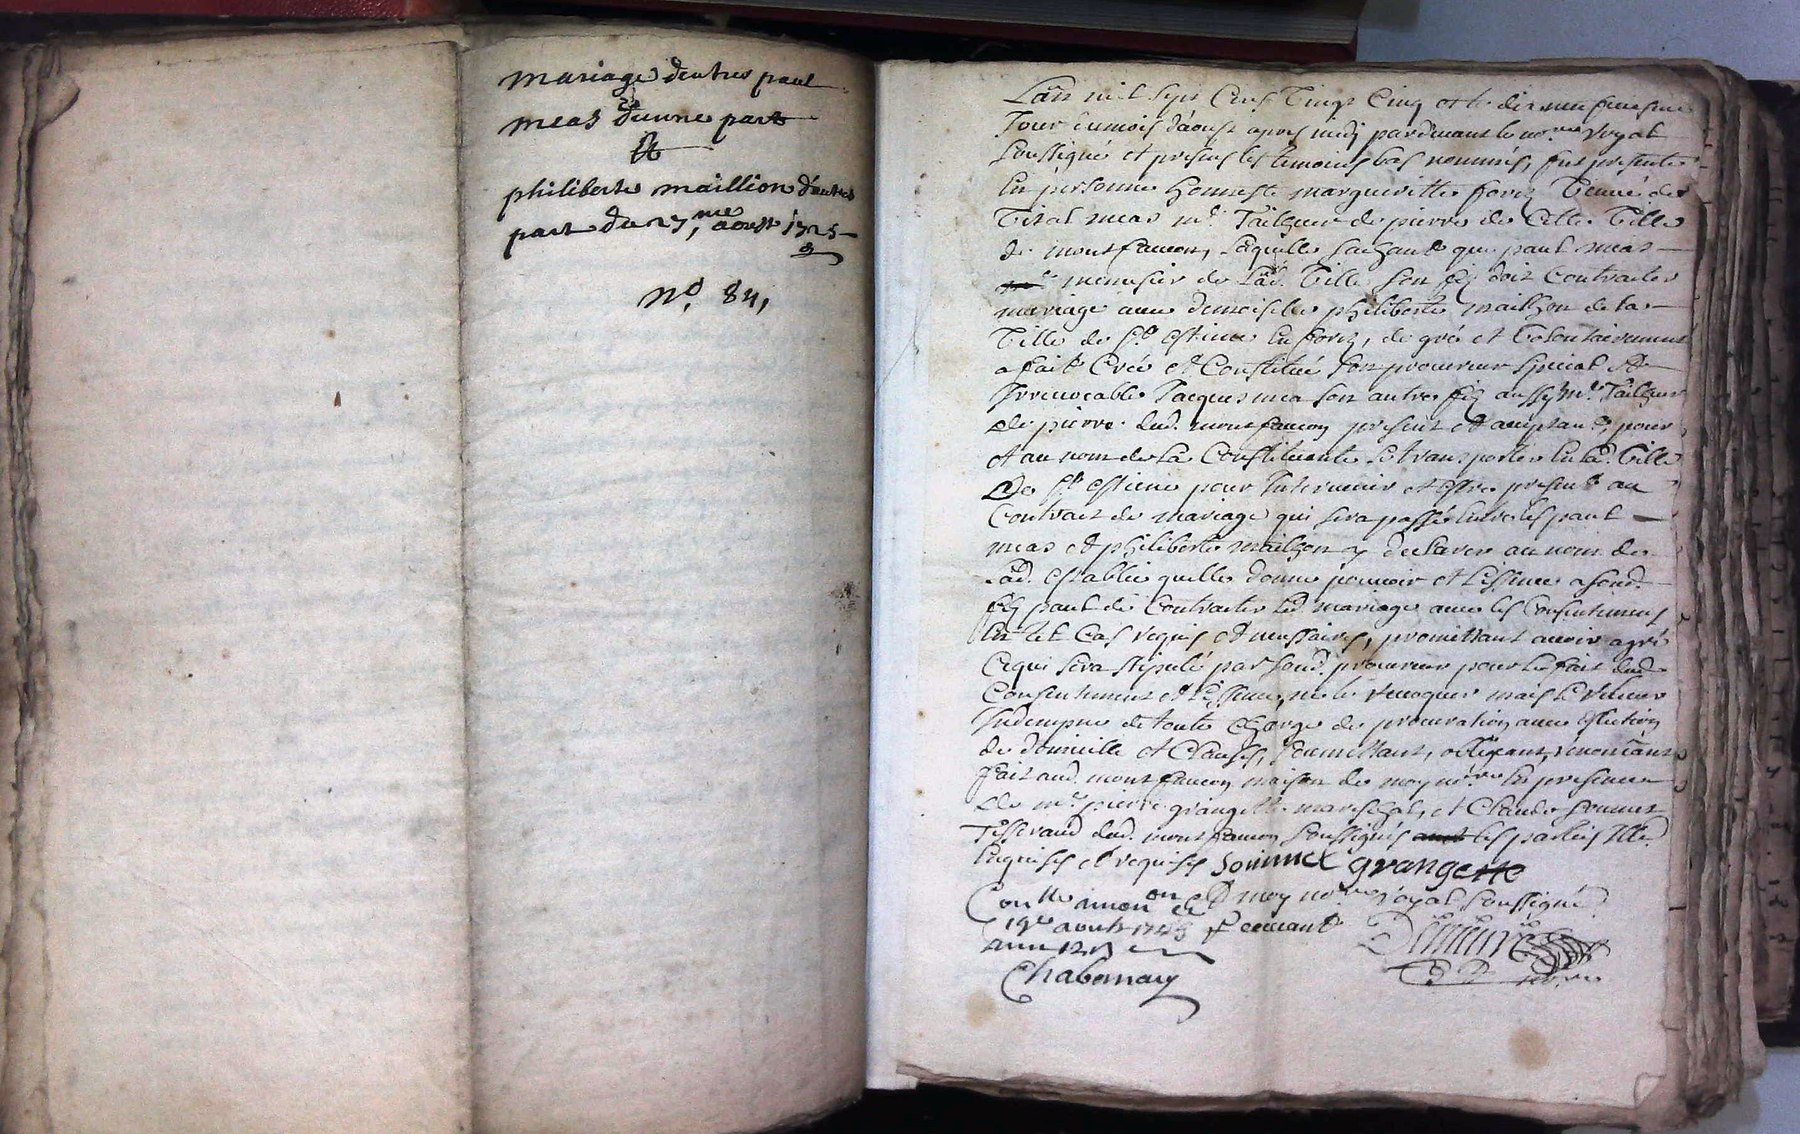 mariage d'entres paul
meas d'unne part
Et
philiberte maillion d'autre
part du 27me aoust 1725
No. 84,
L'an mil sept Cens Vingt Cinq et le dix neufiesme
Jour du mois d'aoust apres midy pardevant le nore royal
soussigné et presens les temoins bas nommés, fut presente
En personne honneste margueritte forez Veuve de
Vital meas mre Tailheur de pierre de Cette Ville
de montfaucon, laquelle sachant que paul meas
mre menusier de lad. Ville son fils doit Contracter
mariage avec demoiselle philiberte mailhon de la
Ville de St estiene En forez, de gré et Volontairement
a fait Créé et Constitué son procureur special et
Irrevocable Jacques mea son autre fils aussy mre Tailheur
de pierre dud. montfaucon present et aceptant, pour
et au nom de la Constituante se transporter En lad. Ville
de St estiene pour Intervenir et estre present au
Contract de mariage qui sera passé Entre les paul
meas et philiberte mailhon y declarer au nom de
lad. establie quelle donne pouvoir et lissence a sond.
fils paul de Contracter led. mariage avec les Consentemens
En tel Cas requis et nessaires, promettant avoir agréé
Ce qui sera stipulé par sond. procureur pour le fait dud.
Consentement et lissence, ne le revoquer mais le relever
Indempne de toute Charge de procuration avec election
de domicille et Clauses, soumettant, obligeant, renonçant
fait aud. montfaucon maison de moy nore En presence
de mre pierre grangette mareschal, et Claude sommet
Tisserand dud. montfaucon soussignés les parties Ille.
Enquises et requises Sommet grangette
Conlle a mon on Et moy nore royal soussigné
19e aoust 1725 Recevant
Chabonnay